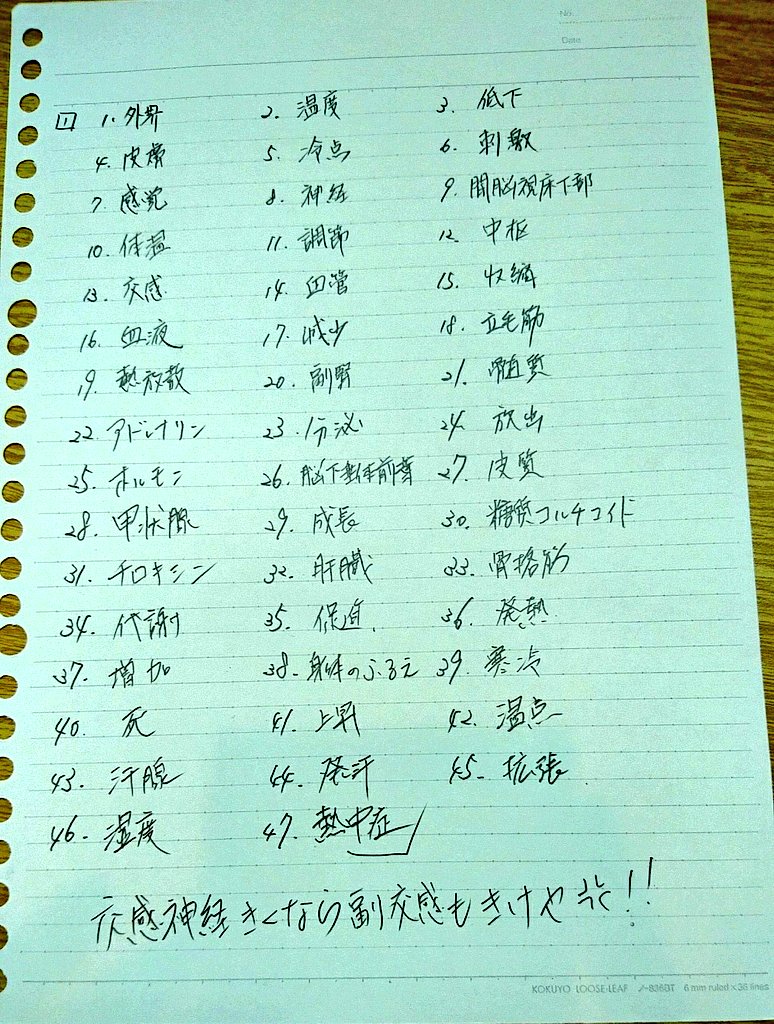 No.
Date
1 1. 外界 2. 温度 3. 低下
4. 皮膚 5. 冷点 6. 刺激
7. 感覚 8. 神経 9. 間脳視床下部
10. 体温 11. 調節 12. 中枢
13. 交感 14. 血管 15. 収縮
16. 血液 17. 減少 18. 立毛筋
19. 熱放散 20. 副腎 21. 髄質
22. アドレナリン 23. 分泌 24. 放出
25. ホルモン 26. 脳下垂体前葉 27. 皮質
28. 甲状腺 29. 成長 30. 糖質コルチコイド
31. チロキシン 32. 肝臓 33. 骨格筋
34. 代謝 35. 促進 36. 発熱
37. 増加 38. 身体のふるえ 39. 寒冷
40. 死 41. 上昇 42. 温点
43. 汗腺 44. 発汗 45. 拡張
46. 湿度 47. 熱中症
交感神経きくなら副交感もきけや!!
KOKUYO LOOSE-LEAF ノ-836BT 6 mm ruled×36 lines